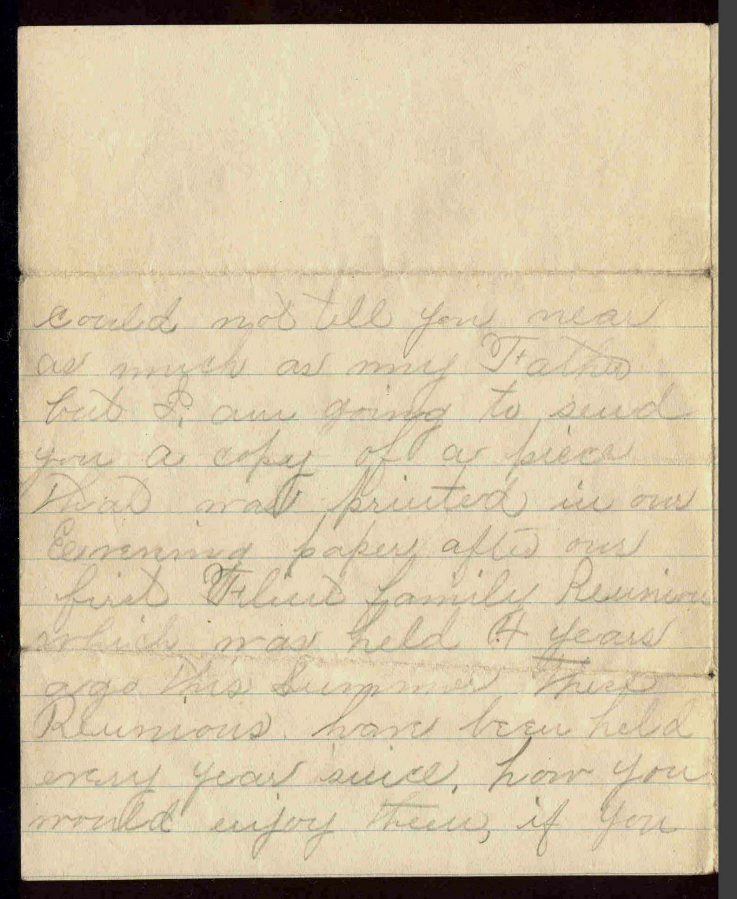 could not tell you near
as much as my Father
but I, am going to send
you a copy of a piece
that was printed in our
Eevening paper after our
first Flint family Reunion
which was held 4 years
ago this Summer These
Reunions have been held
every year since, how you
would enjoy them, if you